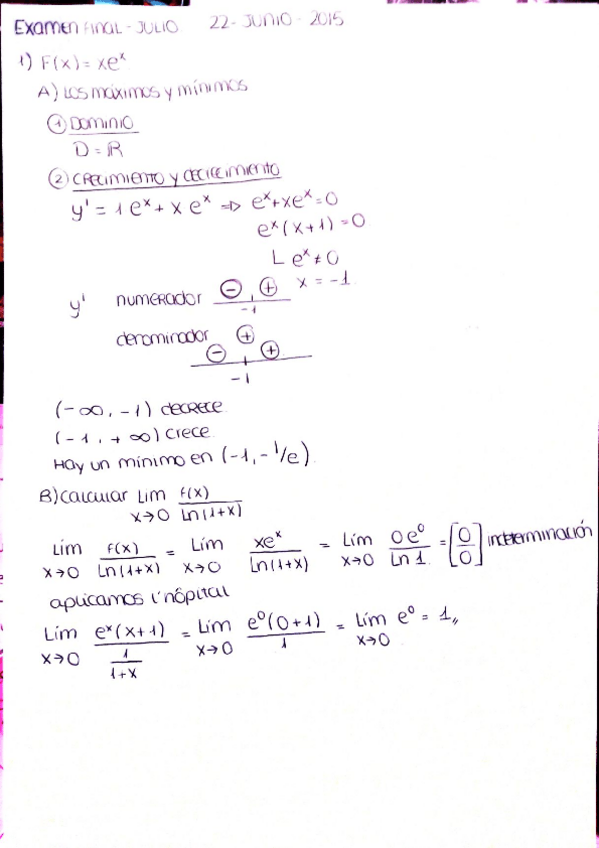 EXAMEN FINAL - JULIO 22 - JUNIO - 2015
1) F(x) = xe^x
A) Los máximos y mínimos
① DOMINIO
D = ℝ
② CRECIMIENTO Y DECRECIMIENTO
y' = 1 e^x + x e^x => e^x + xe^x = 0
e^x (x+1) = 0
L e^x ≠ 0
x = -1
y' numerador ⊖ ⊕
-1
denominador ⊕
⊖ ⊕
-1
(-∞, -1) decrece
(-1, +∞) crece
Hay un mínimo en (-1, -1/e)
B) Calcular Lim x→0 f(x)/Ln(1+x)
Lim x→0 f(x)/Ln(1+x) = Lim x→0 xe^x/Ln(1+x) = Lim x→0 0e^0/Ln 1 = [0/0] indeterminación
aplicamos l'hôpital
Lim x→0 e^x(x+1)/(1/(1+x)) = Lim x→0 e^0(0+1)/1 = Lim x→0 e^0 = 1,,